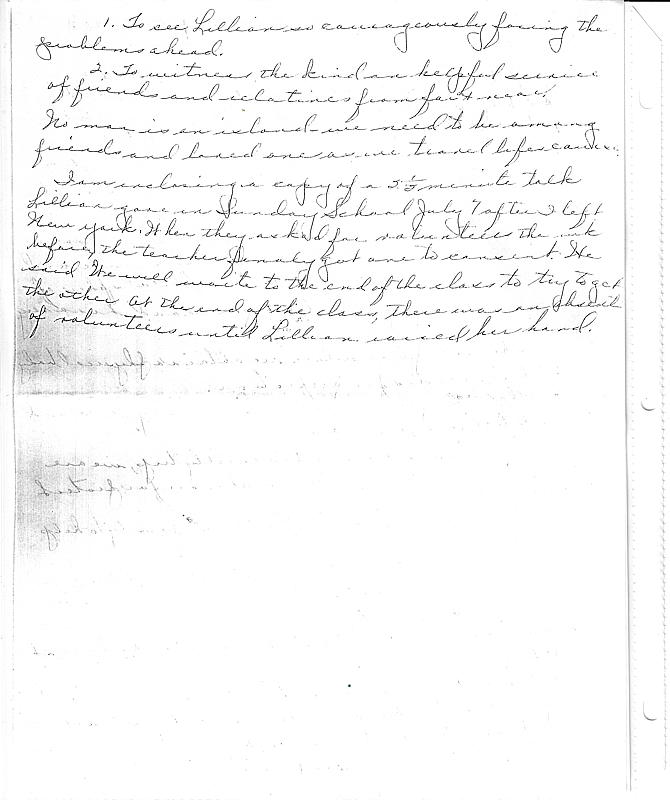 1. To see Lillian so courageously facing the
problems ahead.
2. To witness the kind an helpful service
of friends and relatives from far & near.
No man is an island - we need to be among
friends and loved ones as we travel lifes
I am inclosing a copy of a 2½ minute talk
Lillian gave in Sunday School July 7 after I left
New York. When they asked for volunteers the wk
before, the teacher finaly got one to consent. He
said We will waite to the end of the class to try to get
the other. At the end of the class, there was an
of volunteers until Lillian raised her hand.